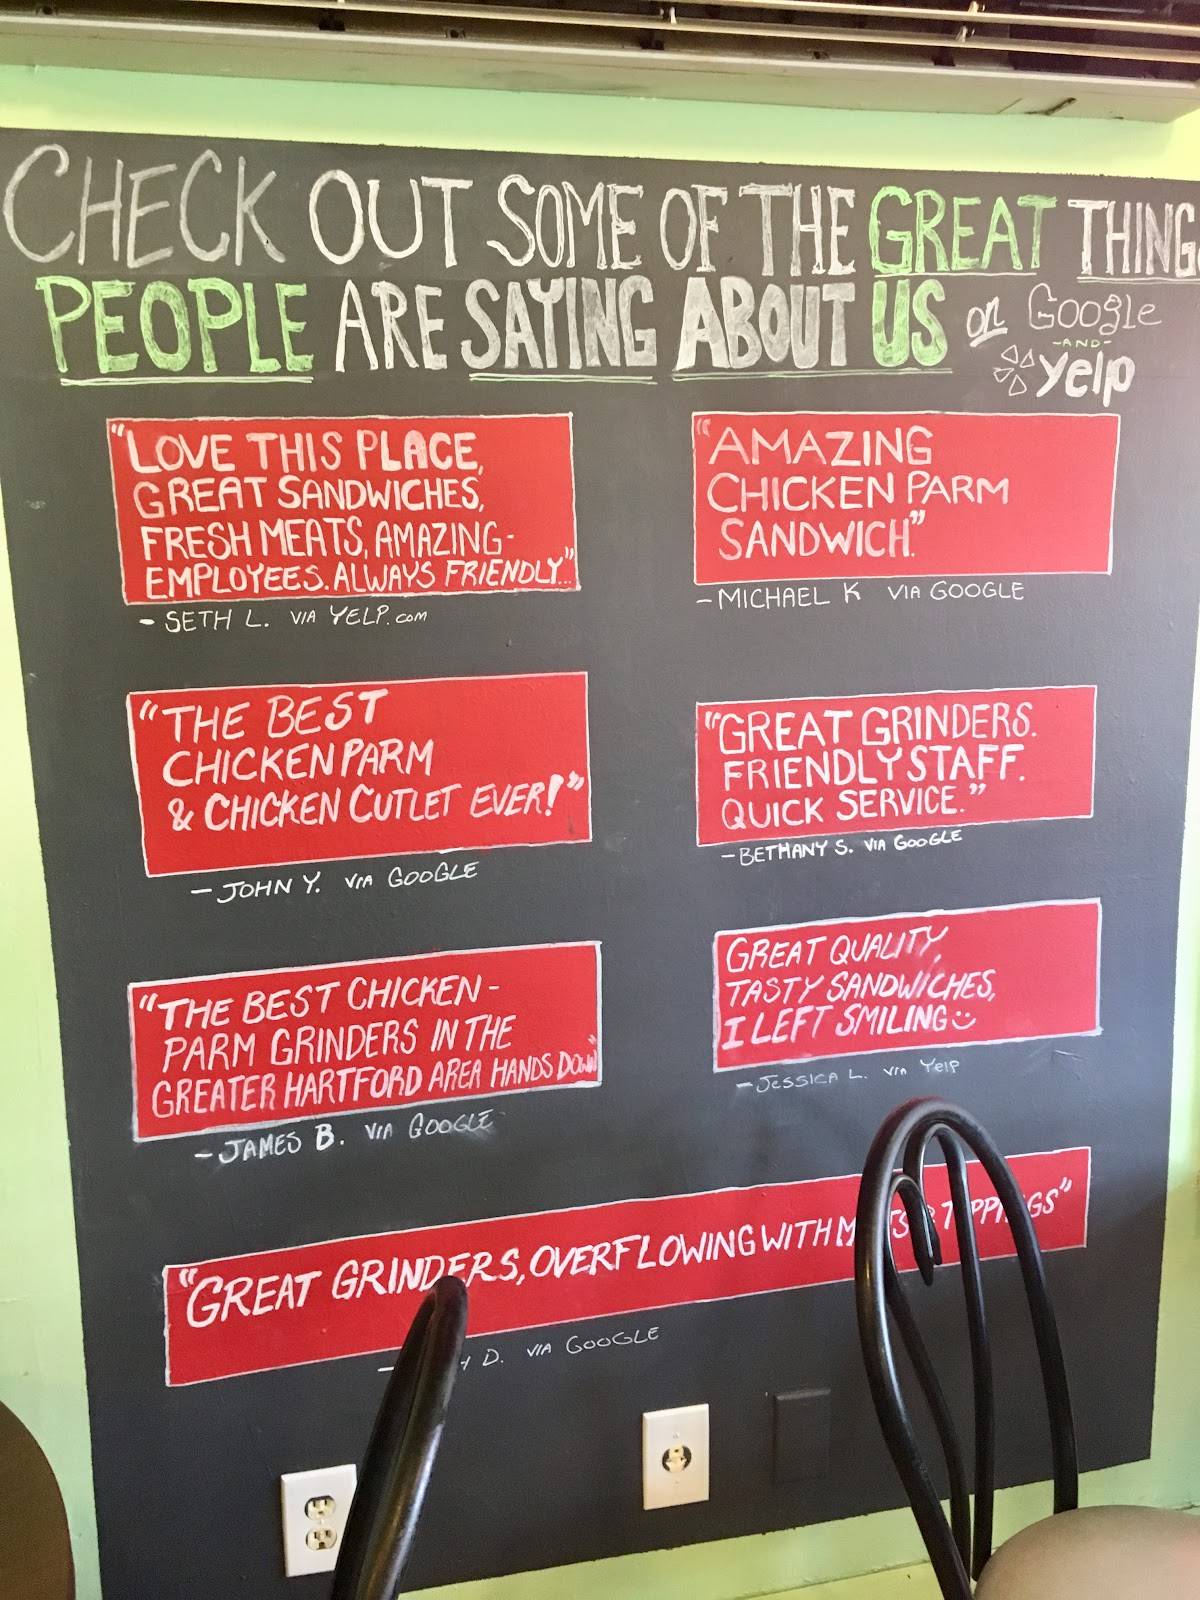 CHECK OUT SOME OF THE GREAT THING
PEOPLE ARE SAYING ABOUT US on Google
-AND-
yelp
"LOVE THIS PLACE,
GREAT SANDWICHES,
FRESH MEATS, AMAZING-
EMPLOYEES. ALWAYS FRIENDLY..."
- SETH L. VIA YELP.com
"AMAZING
CHICKEN PARM
SANDWICH."
- MICHAEL K VIA GOOGLE
"THE BEST
CHICKEN PARM
& CHICKEN CUTLET EVER!"
- JOHN Y. VIA GOOGLE
"GREAT GRINDERS.
FRIENDLY STAFF.
QUICK SERVICE."
- BETHANY S. VIA GOOGLE
"THE BEST CHICKEN-
PARM GRINDERS IN THE
GREATER HARTFORD AREA HANDS DOWN"
- JAMES B. VIA GOOGLE
GREAT QUALITY,
TASTY SANDWICHES,
I LEFT SMILING
- JESSICA L. VIA Yelp
"GREAT GRINDERS, OVERFLOWING WITH
D. VIA GOOGLE